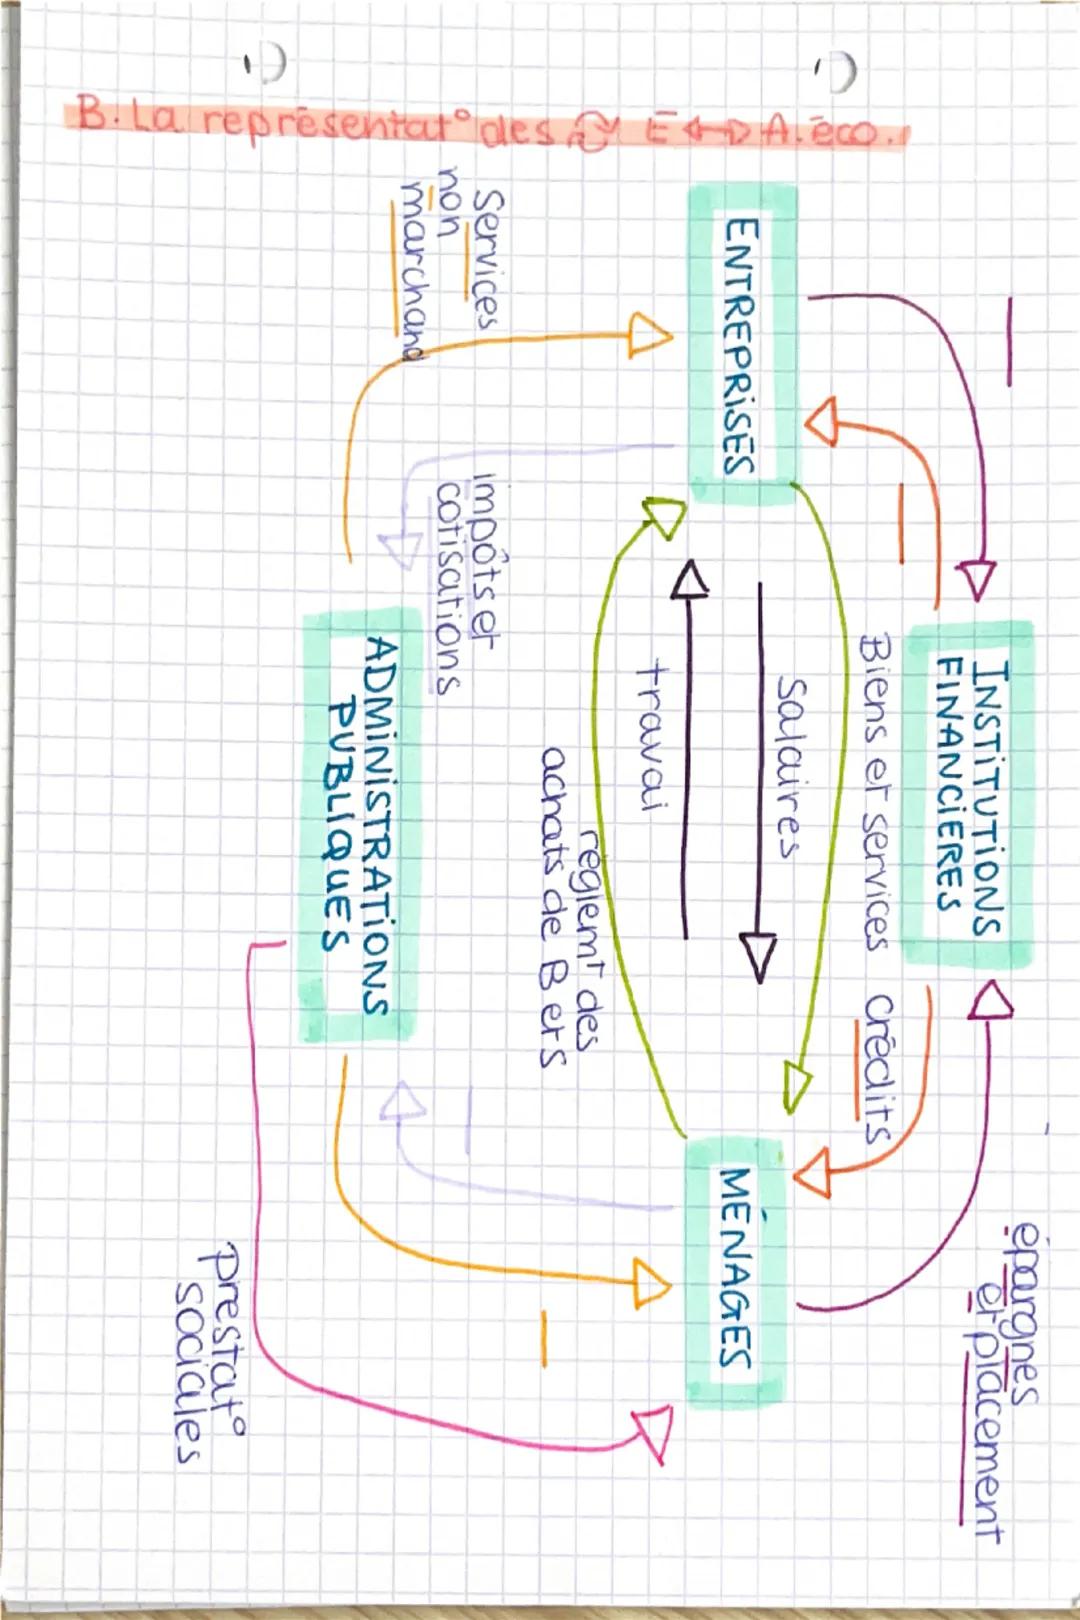 B. La représentat° des E ↔ A. éco.
épargnes
et placement
INSTITUTIONS
FINANCIERES
crédits
Biens et services
ENTREPRISES
Salaires
travai
MÉNAGES
réglemt des
achats de B et S
Services
non
marchand
impôts et
cotisations
ADMINISTRATIONS
PUBLIQUES
prestat°
sociales